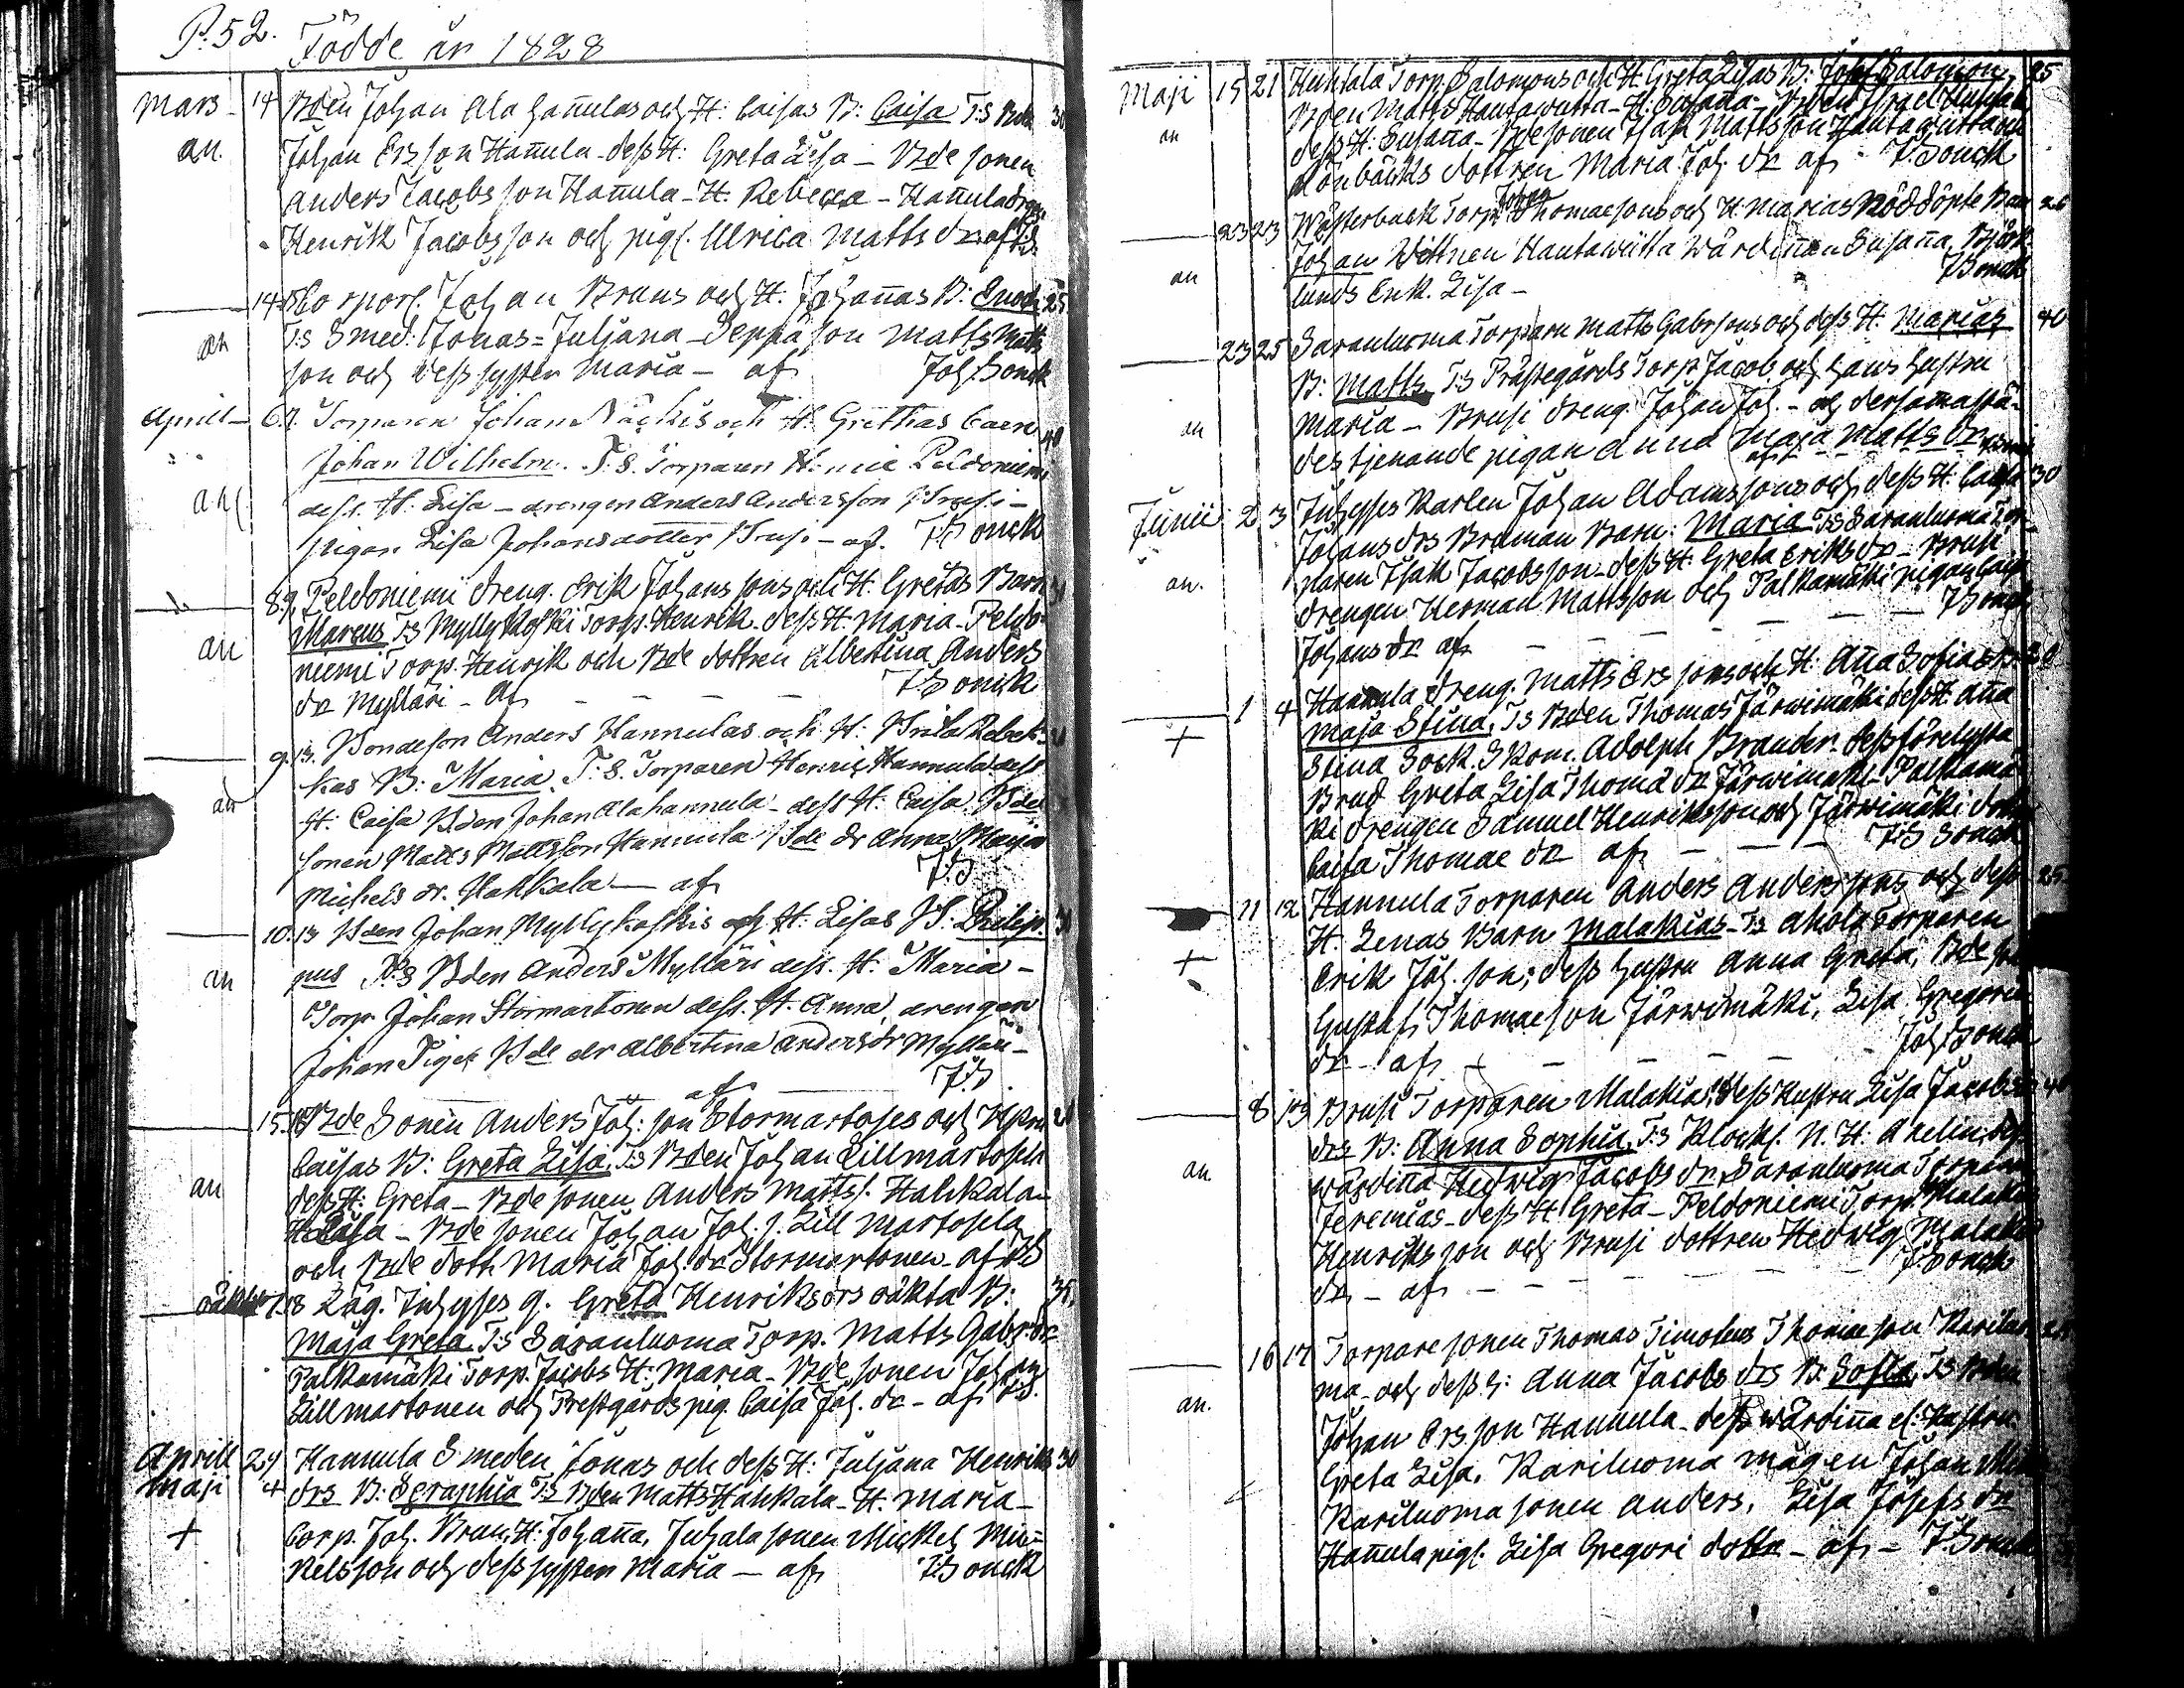 P. 52. Födde år 1828
Mars 14 Bden Johan Ala Hañulas och H: Caisas B: Caisa T:s Bden 30
an. Johan Ersson Hañula - dess H: Greta Lisa - Bde sonen
Anders Jacobsson Hañula - H. Rebecca - Hañula dreng.
Henrik Jacobsson och pig. Ulrica Matts dr af J.S.
14 15 Corporl. Johan Bruns och H: Johañas B: Enoch 25
an T:s Smed: Jonas = Juljana - Seppä son Matts Matts
son och dess syster Maria - af Joh. Sonck
Aprill 6.7. Torparen Johan Näckis och H: Grethas Barn 40
Johan Wilhelm. T.S. Torparen Peldoniemi
an dess H: Lisa - drengen Anders Andersson Brusi -
pigan Lisa Johansdotter Brusi - af. J. Sonck
8.9. Peldoniemi dreng. Erik Johanssons och H: Gretas Barn 31
Marcus T:s Myllykoski Torp. Henrik - dess H. Maria - Peldo-
an niemi Torp. Henrik och Bde dottren Albertina Anders
dr Mylläri - af - - - J. Sonck
9.13. Bondeson Anders Hannulas och H: Brita Rebek-
kas B: Maria. T.S. Torparen Henric Hannula dess
an H: Caisa Bden Johan Alahannula - dess H: Caisa Bde
sonen Matts Mattsson Hannula Bde dr Anna Maja
Michels dr. Hahkala - af J.S
10.13 Bden Johan Myllykoskis och H: Lisas B: Philip-
an pus T:S Bden Anders Mylläri dess. H: Maria -
Torp. Johan Stormartonen dess. H. Anna, drengen
Johan Bde dr Albertina Anders dr Mylläri -
af J.S.
15. Bde Sonen Anders Joh: son Stormartoses och Hustru
Caisas B: Greta Lisa. T:s Bden Johan Lillmartosela
an dess H: Greta - Bde sonen Anders Matts. Hahkala
H: Caisa - Bde sonen Johan Joh. s. Lill Martosela
och Bde dottr Maria Joh. dr Stormartonen - af J.S
oäkta 7.18 Läg. Inhyses q. Greta Henriksdrs oäkta B: 35.
Maja Greta. T:s Saranluoma Torp. Matts Gabr. dr
Palkamäki Torp. Jacobs H: Maria - Bde sonen Johan
Lillmartonen och Prestgårds pig. Caisa Joh. dr - af J.S.
Aprill 29 Hannula Smeden Jonas och dess H: Juljana Henriks 30
Maji 4 drs B: Seraphia T:s Bden Matts Hahkala - H. Maria -
+ Corp. Joh. Brun, H: Johaña. Juhala sonen Mickel Mic-
kelsson och dess syster Maria - af J. Sonck
Maji 15 21 Huhtala Torp. Salomons och H. Greta Lisas B: Johan Salomon 25
Bden Matts Hautawiitta - H: Susaña - Bden Israel
an dess H: Susaña - Bde sonen Isak Mattsson Hautawiitta och
Lönbäcks dottren Maria Joh. dr af - J. Sonck
23 23 Wästerback Torp. Johan Thomaesons och H. Marias Nöddöpte Barn 26
Johan Wittnen Hautawiitta Wärdiñan Susaña, Björk-
an lunds Enk. Lisa - J Sonck
23 25 Saranluoma Torparn Matts Gabrsons och dess H. Marias 40
B: Matts T:s Prästegårds Torp. Jacob och hans hustru
an Maria - Brusi dreng. Johan Joh. - och dersamastä-
des tjenande pigan Anna Maja Matts dr
af
Junii 2 3 Inhyses Karlen Johan Adamssons och dess H. Caisa 30
Johans drs Braman Barn: Maria T:s Saranluoma Tor-
an. paren Isak Jacobsson - dess H. Greta Eriks dr - Brusi
drengen Herman Mattsson och Palkamäki pigan Caisa
Johans dr af - - - - - J Sonck
1 4 Hannula dreng. Matts Ers sons och H: Aña Sofias B. 20
+ Maja Stina. T:s Bden Thomas Järwimäki dess H. Aña
Stina Sock. Skom. Adolph Brander. dess förelofta
Brud Greta Lisa Thomæ dr Järwimäki - Palkamä-
ki drengen Samuel Henriksson och Järwimäki dott.
Caisa Thomae dr af - - - J.S Sonck
11 12 Hannula Torparen Anders Anderssons och dess 25.
H. Lenas Barn Malakias - T:s Ahola Torparen
+ Erik Joh. son; dess hustru Anna Greta, Bde son
Gustaf Thomaeson Järwimäki, Lisa Gregorii
dr - af - - - - - Joh. Sonck
8 Brusi Torparen Malakias, dess hustru Lisa Jacobs 40
drs B: Anna Sophia. T:s Klock. N. H. Ahelin, dess
an. Wärdiña Hedwig Jacobs dr. Saranluoma Torparen
Jeremias - dess H: Greta - Peldoniemi Torp. Malakias
Henriksson och Brusi dottren Hedwig Malakias
dr - af - - - - - J. Sonck
16 17 Torpare sonen Thomas Timoteus Thomaeson Kariluo- 25
ma - och dess h: Anna Jacobs drs B: Sofia, T:s Bden
an. Johan Ersson Hannula - dess Wärdiña el. hustru
Greta Lisa. Kariluoma mågen Johan
Kariluoma sonen Anders, Lisa Josefs dr
Hañula pig. Lisa Gregori dottr - af - J Sonck